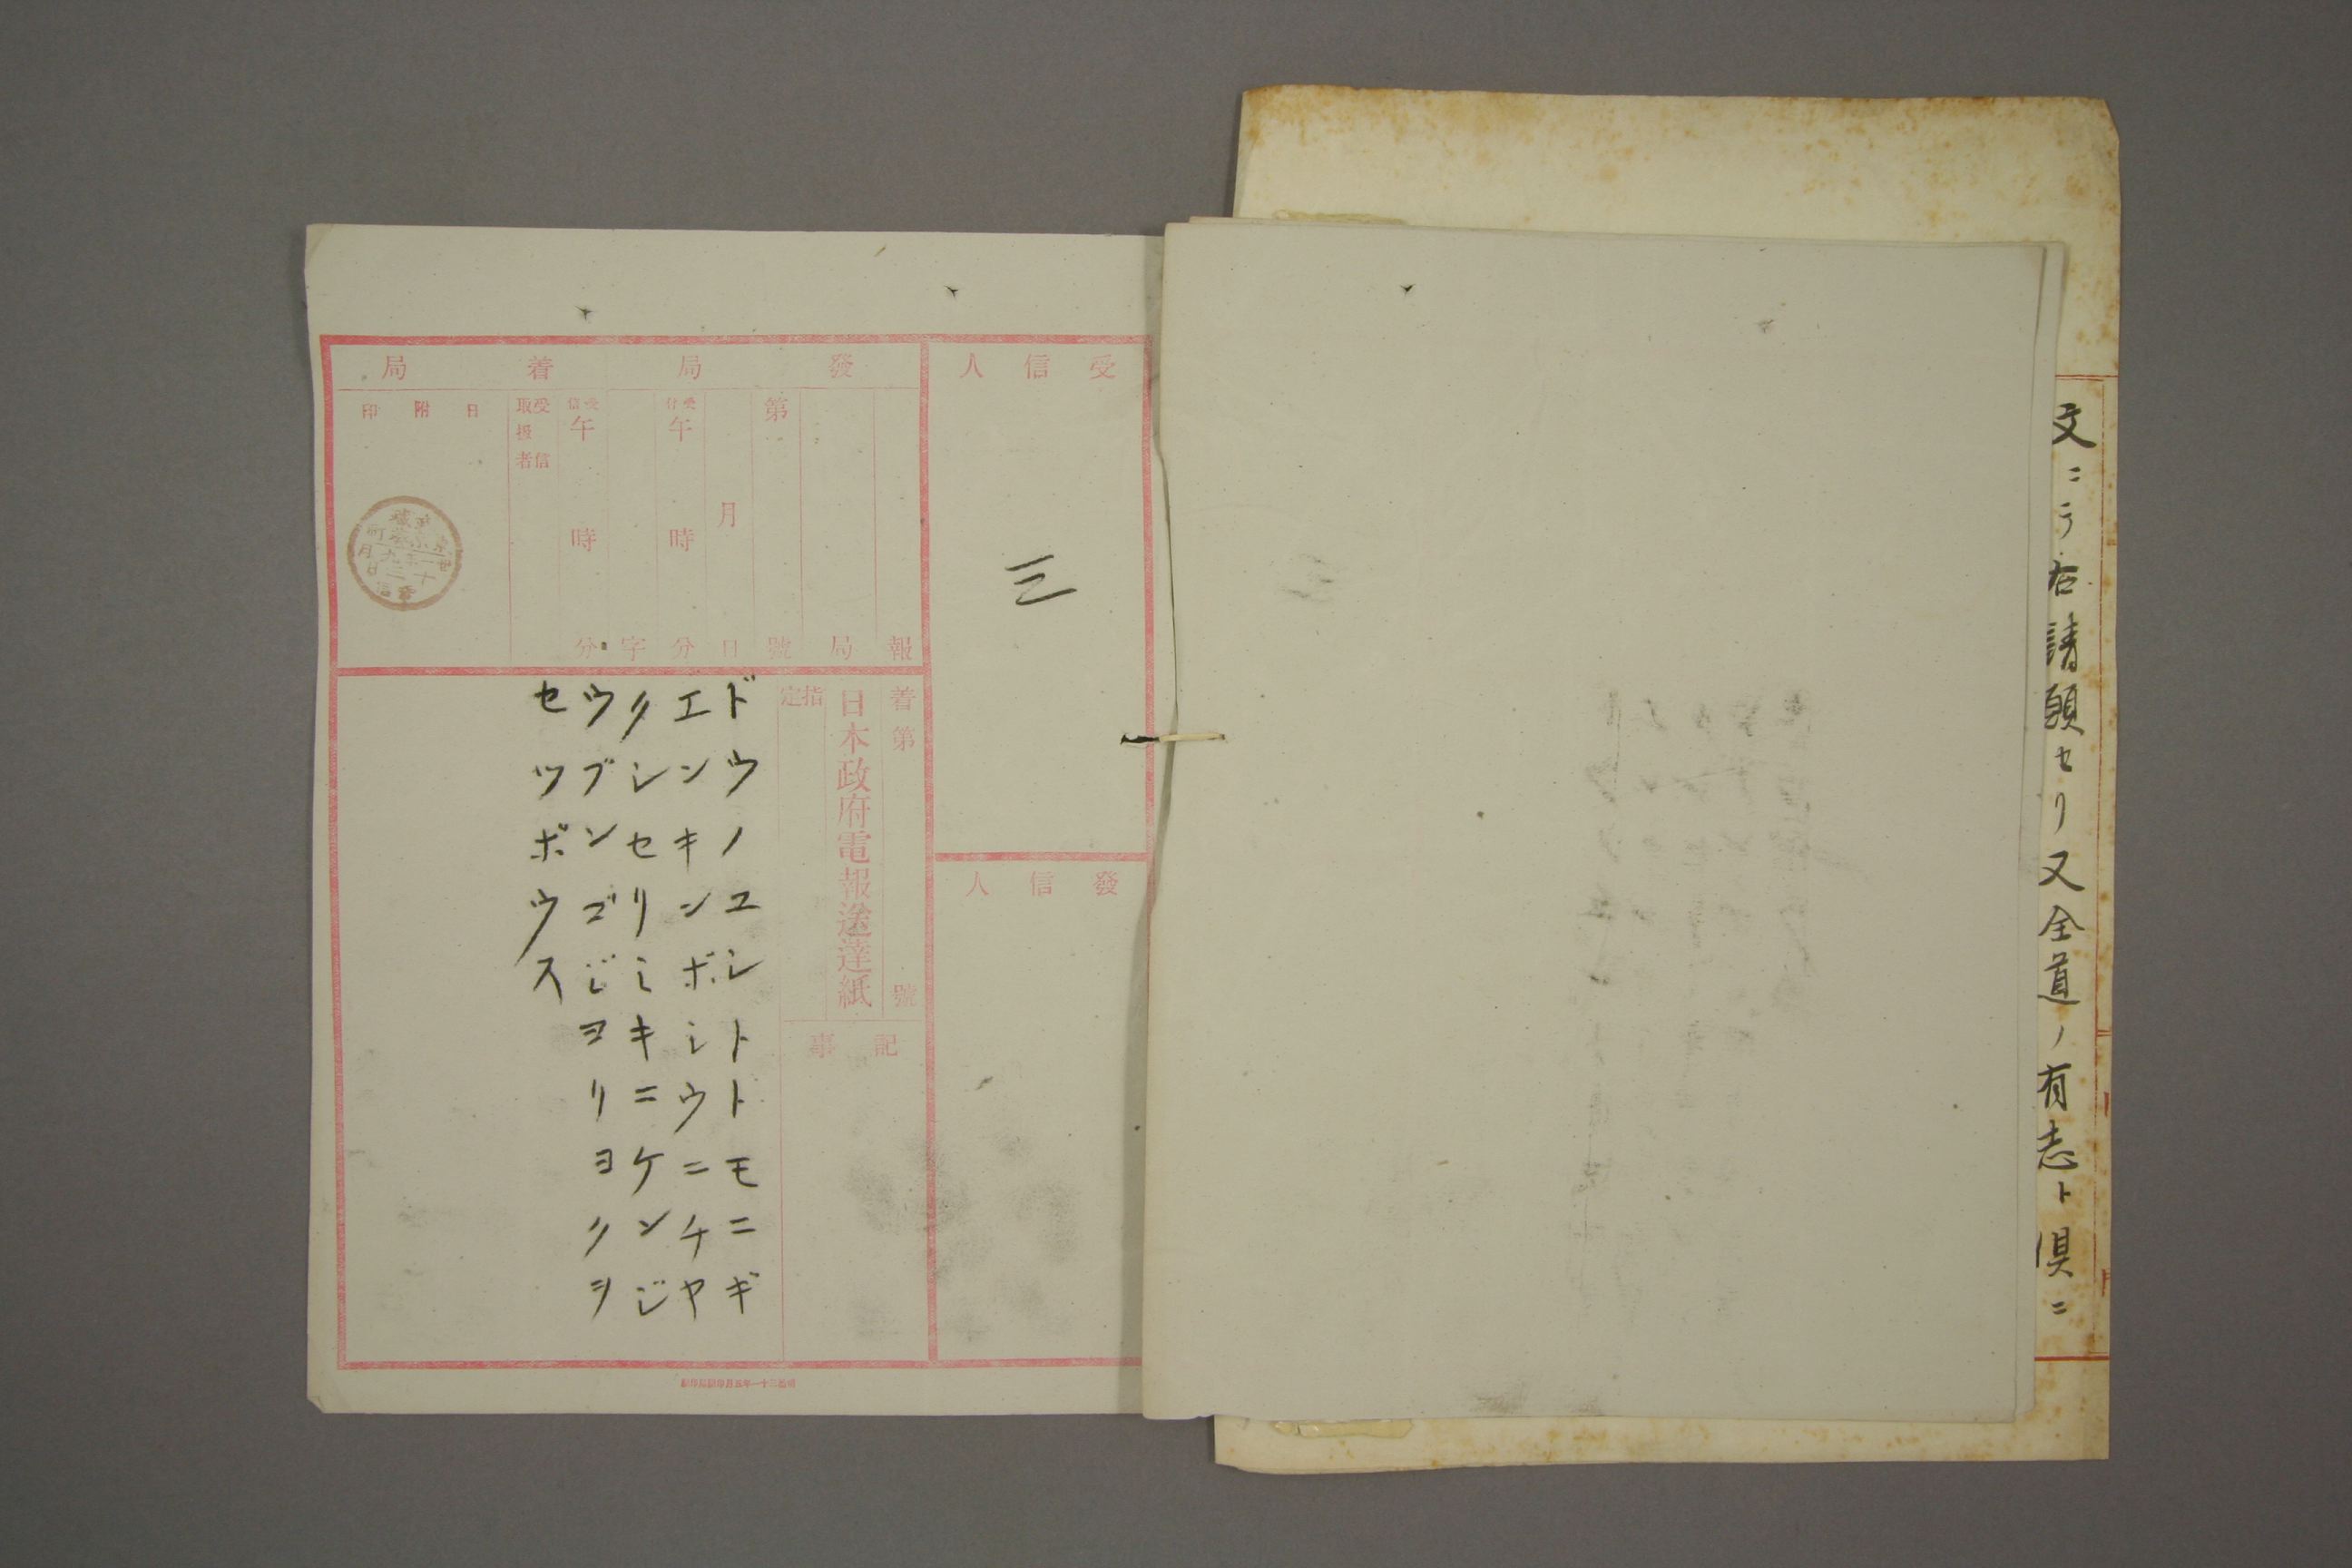 文ニラ右請願セリ又全道ノ有志ト倶ニ
受信人
三
發信人
發局
着局
報
局
第 號
月 日
受付
午 時 分
字
受信
午 時 分
受信
取扱者
日附印
着第 號
日本政府電報送達紙
指定
記事
ドウノユシトトモニギ
エンキンボシウニチヤ
クシセリシキニケンジ
ウブンゴジヨリヨクヲ
セツボウス